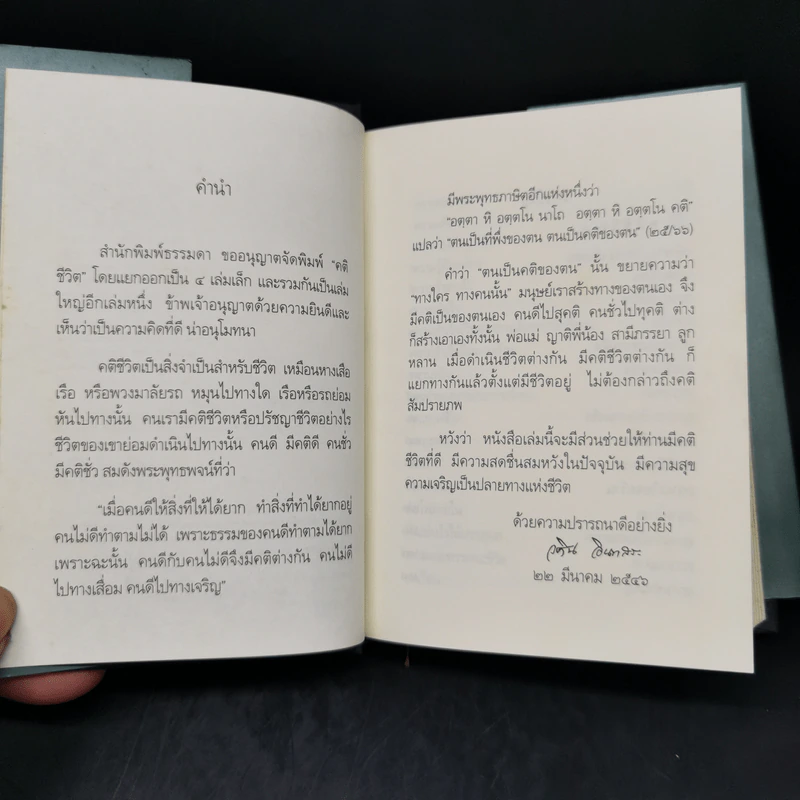 คำนำ
สำนักพิมพ์ธรรมดา ขออนุญาตจัดพิมพ์ “คติ
ชีวิต” โดยแยกออกเป็น ๔ เล่มเล็ก และรวมกันเป็นเล่ม
ใหญ่อีกเล่มหนึ่ง ข้าพเจ้าอนุญาตด้วยความยินดีและ
เห็นว่าเป็นความคิดที่ดี น่าอนุโมทนา
คติชีวิตเป็นสิ่งจำเป็นสำหรับชีวิต เหมือนหางเสือ
เรือ หรือพวงมาลัยรถ หมุนไปทางใด เรือหรือรถย่อม
หันไปทางนั้น คนเรามีคติชีวิตหรือปรัชญาชีวิตอย่างไร
ชีวิตของเขาย่อมดำเนินไปทางนั้น คนดี มีคติดี คนชั่ว
มีคติชั่ว สมดังพระพุทธพจน์ที่ว่า
“เมื่อคนดีให้สิ่งที่ให้ได้ยาก ทำสิ่งที่ทำได้ยากอยู่
คนไม่ดีทำตามไม่ได้ เพราะธรรมของคนดีทำตามได้ยาก
เพราะฉะนั้น คนดีกับคนไม่ดีจึงมีคติต่างกัน คนไม่ดี
ไปทางเสื่อม คนดีไปทางเจริญ”
มีพระพุทธภาษิตอีกแห่งหนึ่งว่า
“อตฺตา หิ อตฺตโน นาโถ อตฺตา หิ อตฺตโน คติ”
แปลว่า “ตนเป็นที่พึ่งของตน ตนเป็นคติของตน” (๒๕/๖๖)
คำว่า “ตนเป็นคติของตน” นั้น ขยายความว่า
“ทางใคร ทางคนนั้น” มนุษย์เราสร้างทางของตนเอง จึง
มีคติเป็นของตนเอง คนดีไปสุคติ คนชั่วไปทุคติ ต่าง
ก็สร้างเอาเองทั้งนั้น พ่อแม่ ญาติพี่น้อง สามีภรรยา ลูก
หลาน เมื่อดำเนินชีวิตต่างกัน มีคติชีวิตต่างกัน ก็
แยกทางกันแล้วตั้งแต่มีชีวิตอยู่ ไม่ต้องกล่าวถึงคติ
สัมปรายภพ
หวังว่า หนังสือเล่มนี้จะมีส่วนช่วยให้ท่านมีคติ
ชีวิตที่ดี มีความสดชื่นสมหวังในปัจจุบัน มีความสุข
ความเจริญเป็นปลายทางแห่งชีวิต
ด้วยความปรารถนาดีอย่างยิ่ง
วศิน อินทสระ
๒๒ มีนาคม ๒๕๔๖